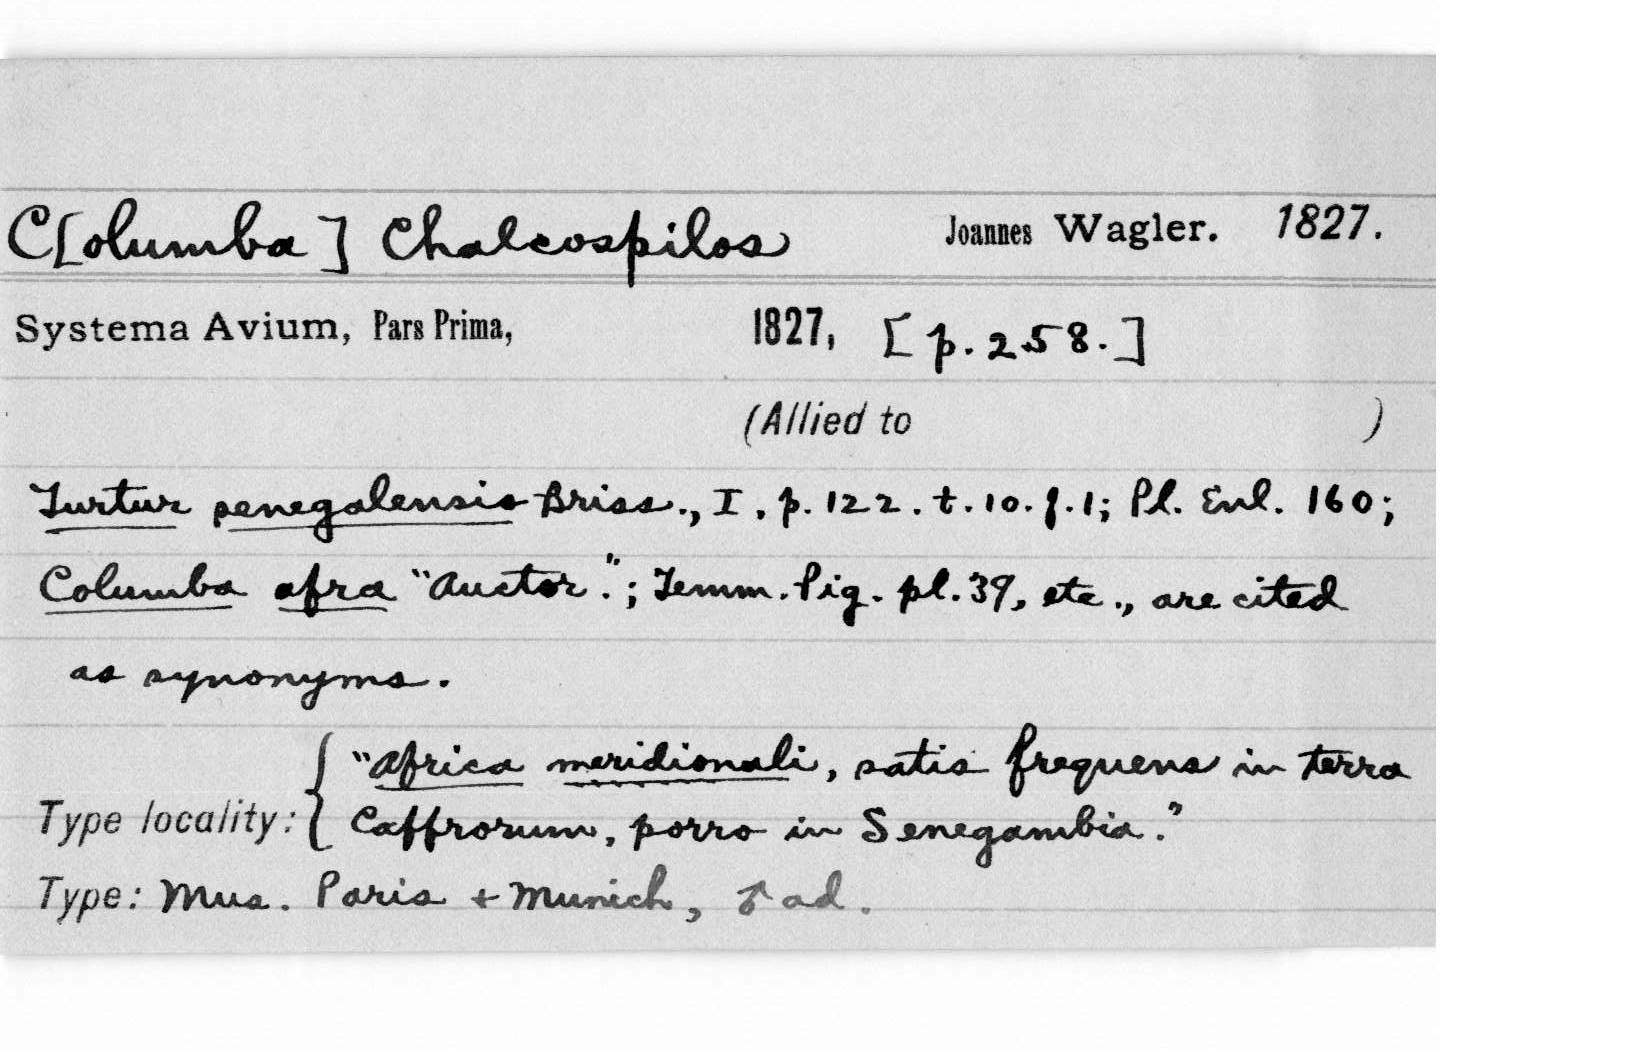 C[olumba] Chalcospilos Joannes Wagler. 1827.
Systema Avium, Pars Prima, 1827, [p. 258.]
(Allied to )
Turtur senegalensis Briss., I, p. 122. t. 10. f. 1; Pl. Enl. 160;
Columba afra "Auctor."; Temm. Pig. pl. 39, etc., are cited
as synonyms.
"Africa meridionali, satis frequens in terra
Type locality: { Caffrorum, porro in Senegambia."
Type: Mus. Paris + Munich, ♂ ad.